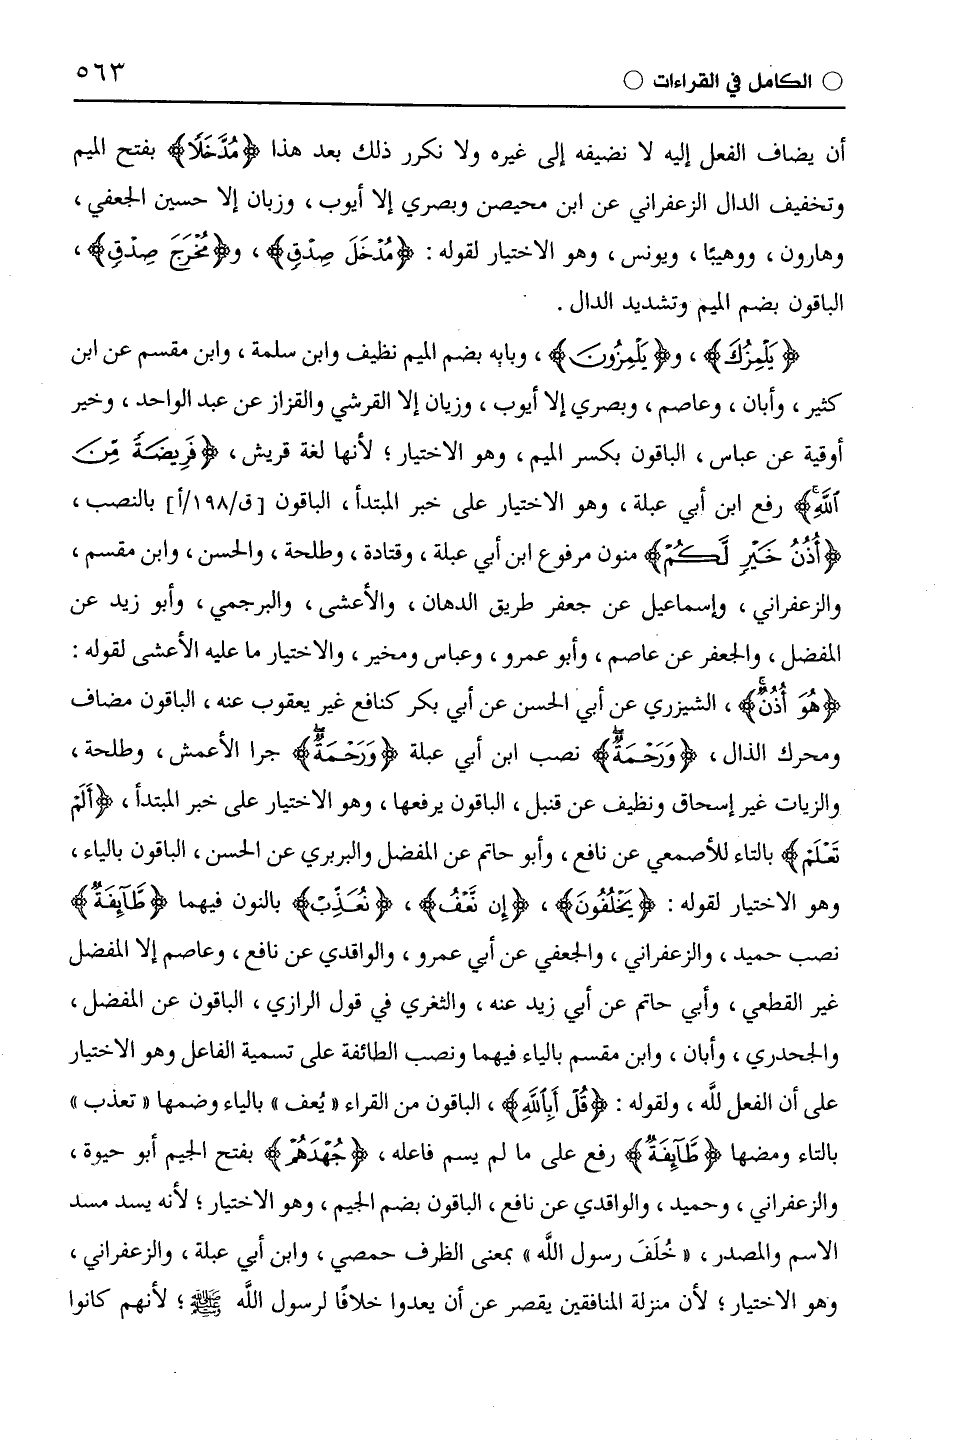 ○ الكامل في القراءات ○
٥٦٣
أن يضاف الفعل إليه لا نضيفه إلى غيره ولا نكرر ذلك بعد هذا ﴿مُدَّخَلًا﴾ بفتح الميم
وتخفيف الدال الزعفراني عن ابن محيصن وبصري إلا أيوب ، وزبان إلا حسين الجعفي ،
وهارون ، ووهيبًا ، ويونس ، وهو الاختيار لقوله : ﴿مُدْخَلَ صِدْقٍ﴾ ، و﴿مُخْرَجَ صِدْقٍ﴾ ،
الباقون بضم الميم وتشديد الدال .
﴿يَلْمِزُكَ﴾ ، و﴿يَلْمِزُونَ﴾ ، وبابه بضم الميم نظيف وابن سلمة ، وابن مقسم عن ابن
كثير ، وأبان ، وعاصم ، وبصري إلا أيوب ، وزيان إلا القرشي والقزاز عن عبد الواحد ، وخير
أوقية عن عباس ، الباقون بكسر الميم ، وهو الاختيار ؛ لأنها لغة قريش ، ﴿فَرِيضَةً مِّنَ
ٱللَّهِ﴾ رفع ابن أبي عبلة ، وهو الاختيار على خبر المبتدأ ، الباقون [ق/١٩٨/أ] بالنصب ،
﴿أُذُنُ خَيْرٍ لَّكُمْ﴾ منون مرفوع ابن أبي عبلة ، وقتادة ، وطلحة ، والحسن ، وابن مقسم ،
والزعفراني ، وإسماعيل عن جعفر طريق الدهان ، والأعشى ، والبرجمي ، وأبو زيد عن
المفضل ، والجعفر عن عاصم ، وأبو عمرو ، وعباس ومخير ، والاختيار ما عليه الأعشى لقوله :
﴿هُوَ أُذُنٌ﴾ ، الشيزري عن أبي الحسن عن أبي بكر كنافع غير يعقوب عنه ، الباقون مضاف
ومحرك الذال ، ﴿وَرَحْمَةٌ﴾ نصب ابن أبي عبلة ﴿وَرَحْمَةٌ﴾ جرا الأعمش ، وطلحة ،
والزيات غير إسحاق ونظيف عن قنبل ، الباقون يرفعها ، وهو الاختيار على خبر المبتدأ ، ﴿أَلَمْ
تَعْلَمْ﴾ بالتاء للأصمعي عن نافع ، وأبو حاتم عن المفضل والبربري عن الحسن ، الباقون بالياء ،
وهو الاختيار لقوله : ﴿يَحْلِفُونَ﴾ ، ﴿إِن نَّعْفُ﴾ ، ﴿نُعَذِّبْ﴾ بالنون فيهما ﴿طَآئِفَةٌ﴾
نصب حميد ، والزعفراني ، والجعفي عن أبي عمرو ، والواقدي عن نافع ، وعاصم إلا المفضل
غير القطعي ، وأبي حاتم عن أبي زيد عنه ، والثغري في قول الرازي ، الباقون عن المفضل ،
والجحدري ، وأبان ، وابن مقسم بالياء فيهما ونصب الطائفة على تسمية الفاعل وهو الاختيار
على أن الفعل للَّه ، ولقوله : ﴿قُلْ أَبِٱللَّهِ﴾ ، الباقون من القراء « يُعف » بالياء وضمها « تعذب »
بالتاء ومضها ﴿طَآئِفَةٌ﴾ رفع على ما لم يسم فاعله ، ﴿جُهْدَهُمْ﴾ بفتح الجيم أبو حيوة ،
والزعفراني ، وحميد ، والواقدي عن نافع ، الباقون بضم الجيم ، وهو الاختيار ؛ لأنه يسد مسد
الاسم والمصدر ، « خُلَفَ رسول اللَّه » بمعنى الظرف حمصي ، وابن أبي عبلة ، والزعفراني ،
وهو الاختيار ؛ لأن منزلة المنافقين يقصر عن أن يعدوا خلافًا لرسول اللَّه ﷺ ؛ لأنهم كانوا